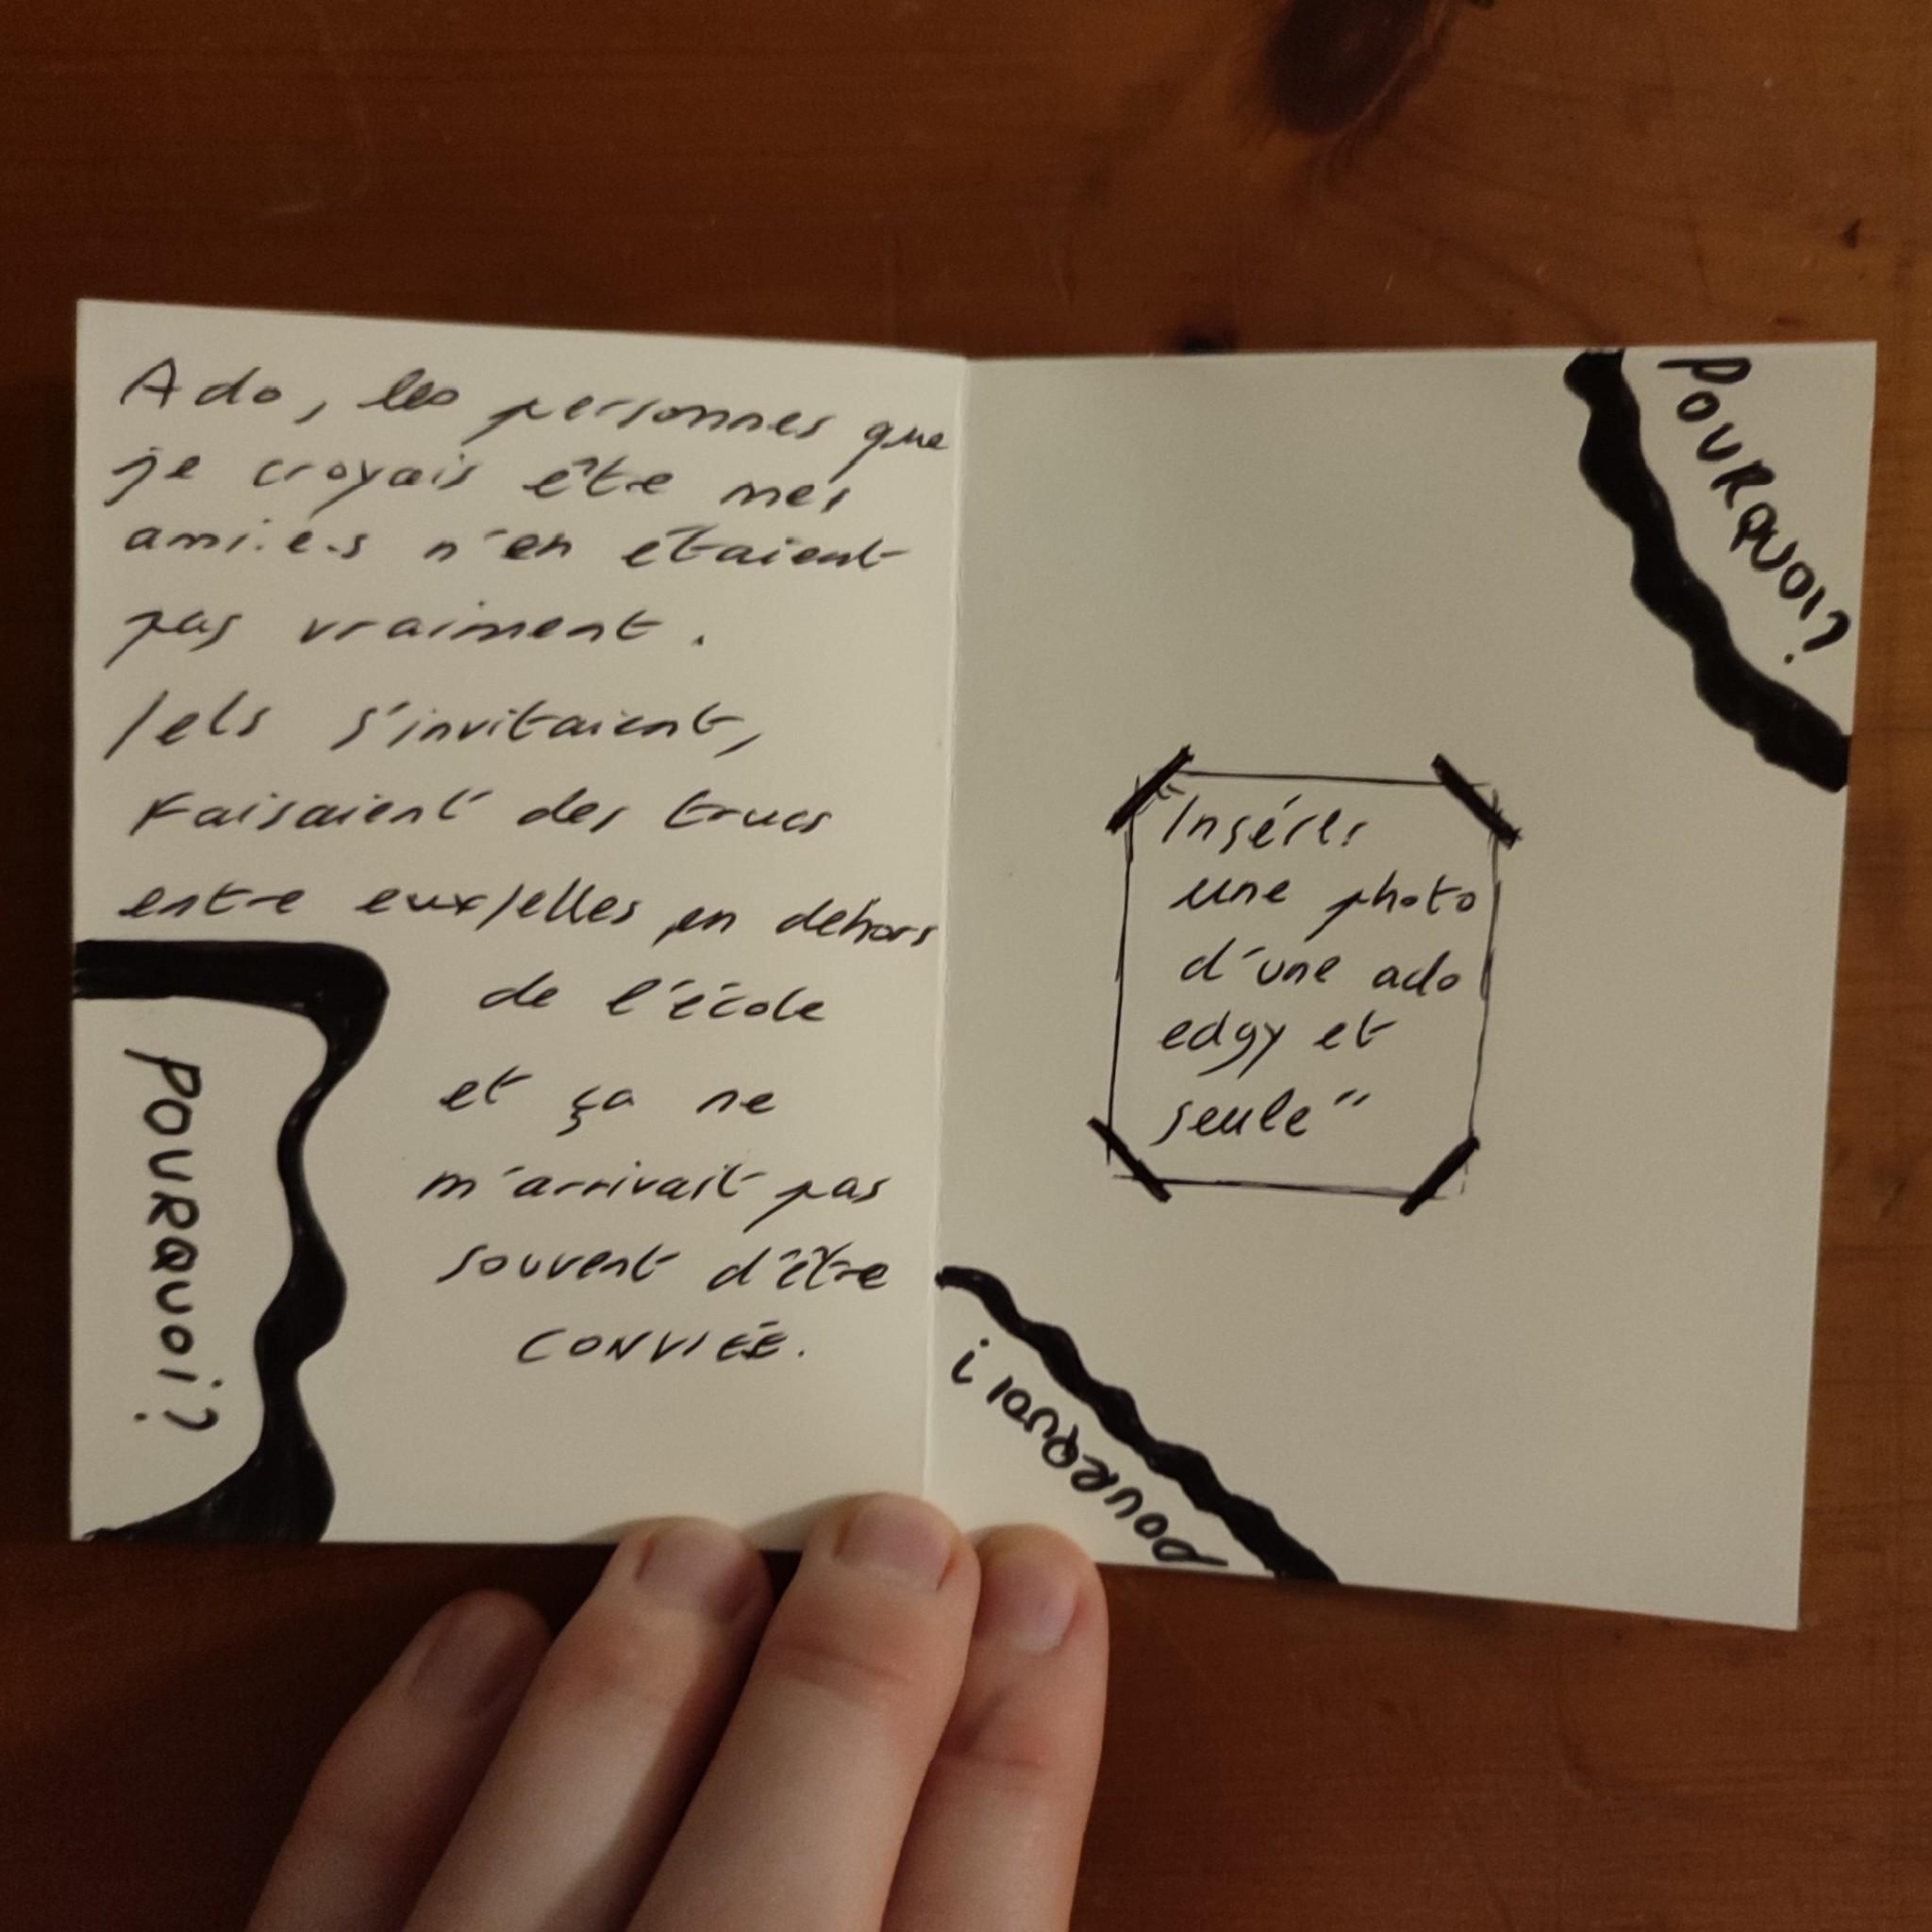 Ado, les personnes que
je croyais être mes
ami.e.s n'en étaient
pas vraiment.
Iels s'invitaient,
Faisaient des trucs
entre eux/elles en dehors
de l'école
et ça ne
m'arrivait pas
souvent d'être
CONVIÉE.
POURQUOI?
POURQUOI?
"Insérer
une photo
d'une ado
edgy et
seule"
POURQUOI?